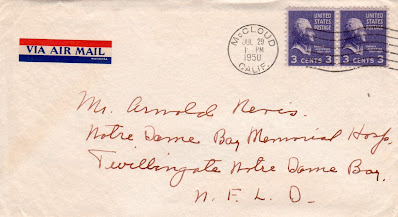 VIA AIR MAIL
McCLOUD
JUL 29
1 PM
1950
CALIF.
UNITED STATES POSTAGE
3 CENTS 3
UNITED STATES POSTAGE
3 CENTS 3
Mr. Arnold
Notre Dame Bay Memorial Hosp,
Twillingate Notre Dame Bay.
N. F. L. D.